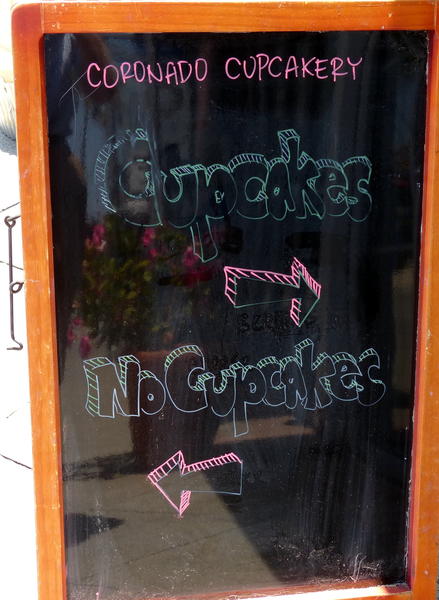 CORONADO CUPCAKERY
Cupcakes
No Cupcakes